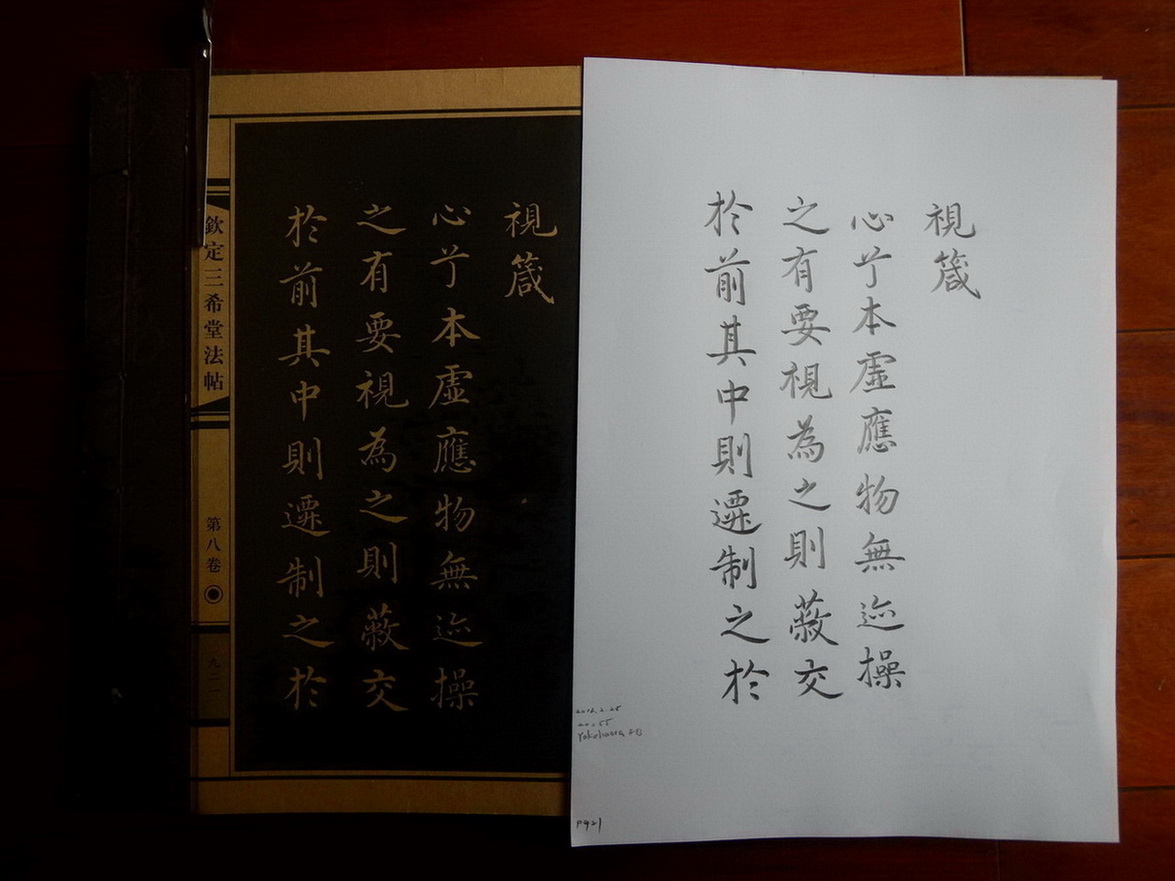 欽定三希堂法帖
第八卷
九二一
視箴
心兮本虛應物無迹操
之有要視為之則蔽交
於前其中則遷制之於
視箴
心兮本虛應物無迹操
之有要視為之則蔽交
於前其中則遷制之於
20:55
P921